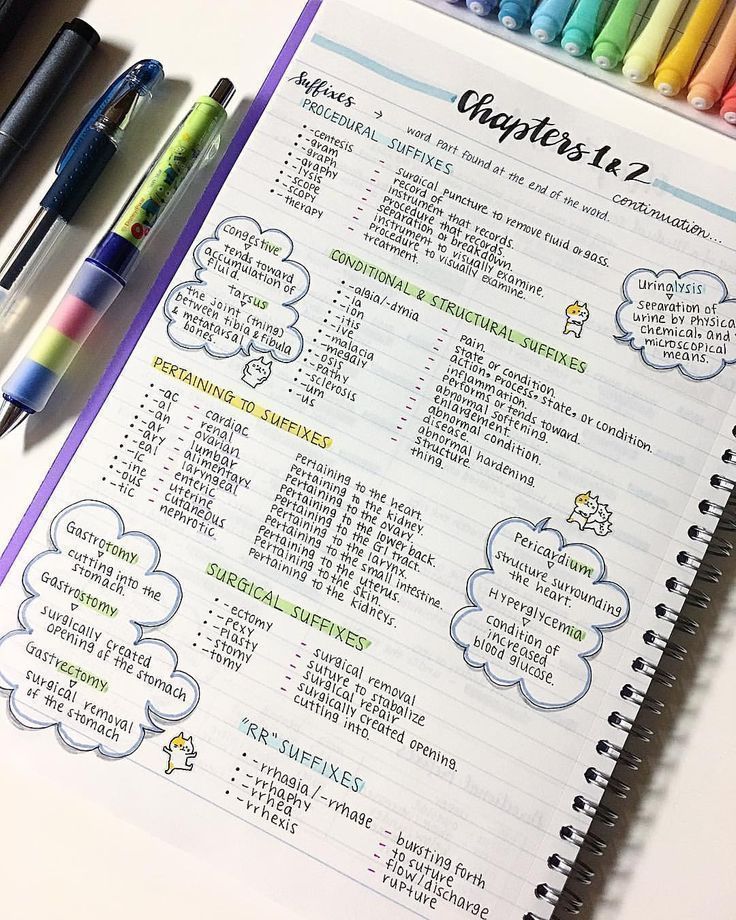 Chapters 1 & 2
continuation...
Suffixes → word part found at the end of the word.
PROCEDURAL SUFFIXES
• -centesis - surgical puncture to remove fluid or gass.
• -gram - record of.
• -graph - instrument that records.
• -graphy - procedure that records.
• -lysis - separation or breakdown.
• -scope - instrument to visually examine.
• -scopy - procedure to visually examine.
• -therapy - treatment.
congestive
tends toward
accumulation of
fluid.
Tarsus
the joint (thing)
between tibia & fibula
& metatarsal
bones.
Urinalysis
separation of
urine by physical
chemical, and
microscopical
means.
CONDITIONAL & STRUCTURAL SUFFIXES
• -algia/-dynia - pain.
• -ia - state or condition.
• -ion - action, process, state, or condition.
• -itis - inflammation.
• -ive - performs or tends toward.
• -malacia - abnormal softening.
• -megaly - enlargement.
• -osis - abnormal condition.
• -pathy - disease.
• -sclerosis - abnormal hardening.
• -um - structure.
• -us - thing.
PERTAINING TO SUFFIXES
• -ac - cardiac Pertaining to the heart.
• -al - renal Pertaining to the kidney.
• -an - ovarian Pertaining to the ovary.
• -ar - lumbar Pertaining to the lower back.
• -ary - alimentary Pertaining to the GI tract.
• -eal - laryngeal Pertaining to the larynx.
• -ic - enteric Pertaining to the small intestine.
• -ine - uterine Pertaining to the uterus.
• -ous - cutaneous Pertaining to the skin.
• -tic - nephrotic Pertaining to the kidneys.
Gastrotomy
cutting into the
stomach.
Gastrostomy
surgically created
opening of the stomach
Gastrectomy
surgical removal
of the stomach
Pericardium
structure surrounding
the heart.
Hyperglycemia
condition of
increased
blood glucose.
SURGICAL SUFFIXES
• -ectomy - surgical removal
• -pexy - suture to stabalize
• -plasty - surgical repair
• -stomy - surgically created opening.
• -tomy - cutting into.
"RR" SUFFIXES
• -rrhagia/-rrhage - bursting forth
• -rrhaphy - to suture
• -rrhea - flow/discharge
• -rrhexis - rupture